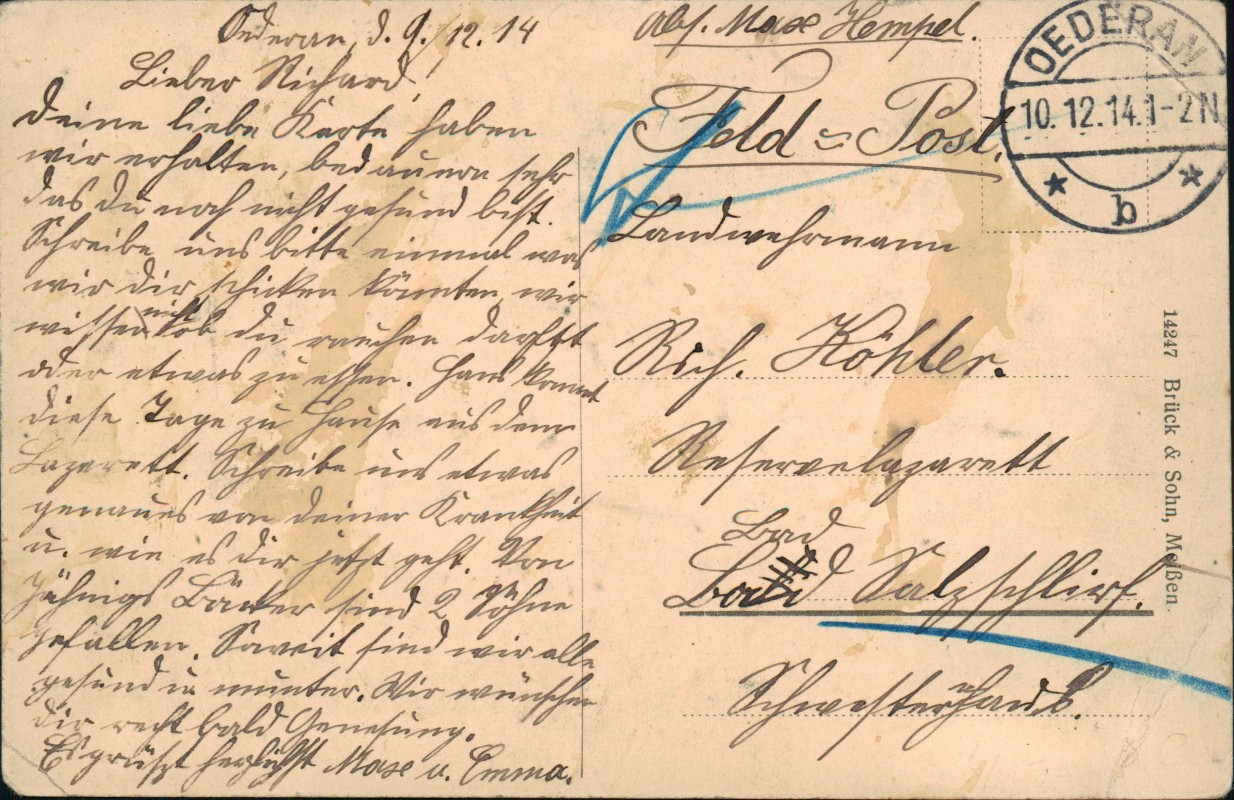 Oederan, d. 9./12.14
Lieber Richard,
Deine liebe Karte haben
wir erhalten, bedauern sehr
das du noch nicht gesund bist.
Schreibe uns bitte einmal was
wir dir schicken könnten, wir
wissen nicht ob du rauchen darfst
oder etwas zu essen. Hans kommt
diese Tage zu Hause aus dem
Lazarett. Schreibe uns etwas
genaues von deiner Krankheit
u. wie es dir jetzt geht. Von
Jähnigs Bäcker sind 2 Söhne
gefallen. Soweit sind wir alle
gesund u. munter. Wir wünschen
dir recht bald Genesung.
Es grüszt herzlichst Max u. Emma.
Abs. Max Hempel.
Feld=Post.
Landwehrmann
Rich. Köhler.
Reservelazarett
Bad
Bad Salzschlirf.
Schwesternhaus.
OEDERAN
10.12.14.1-2N
* b *
14247 Brück & Sohn, Meißen.